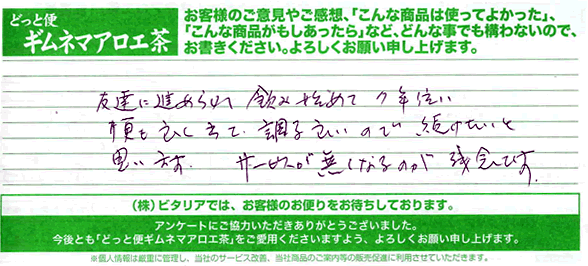 どっと便
ギムネマアロエ茶
お客様のご意見やご感想、「こんな商品は使ってよかった」、
「こんな商品がもしあったら」など、どんな事でも構わないので、
お書きください。よろしくお願い申し上げます。
友達に進められ 飲み始めて 7年位い
便も良く出て、調子良いので 続けたいと
思います。 サービスが無くなるのが 残念です。
(株)ビタリアでは、お客様のお便りをお待ちしております。
アンケートにご協力いただきありがとうございました。
今後とも「どっと便ギムネマアロエ茶」をご愛用くださいますよう、よろしくお願い申し上げます。
※個人情報は厳重に管理し、当社のサービス改善、当社商品のご案内等の販売促進に利用させていただきます。